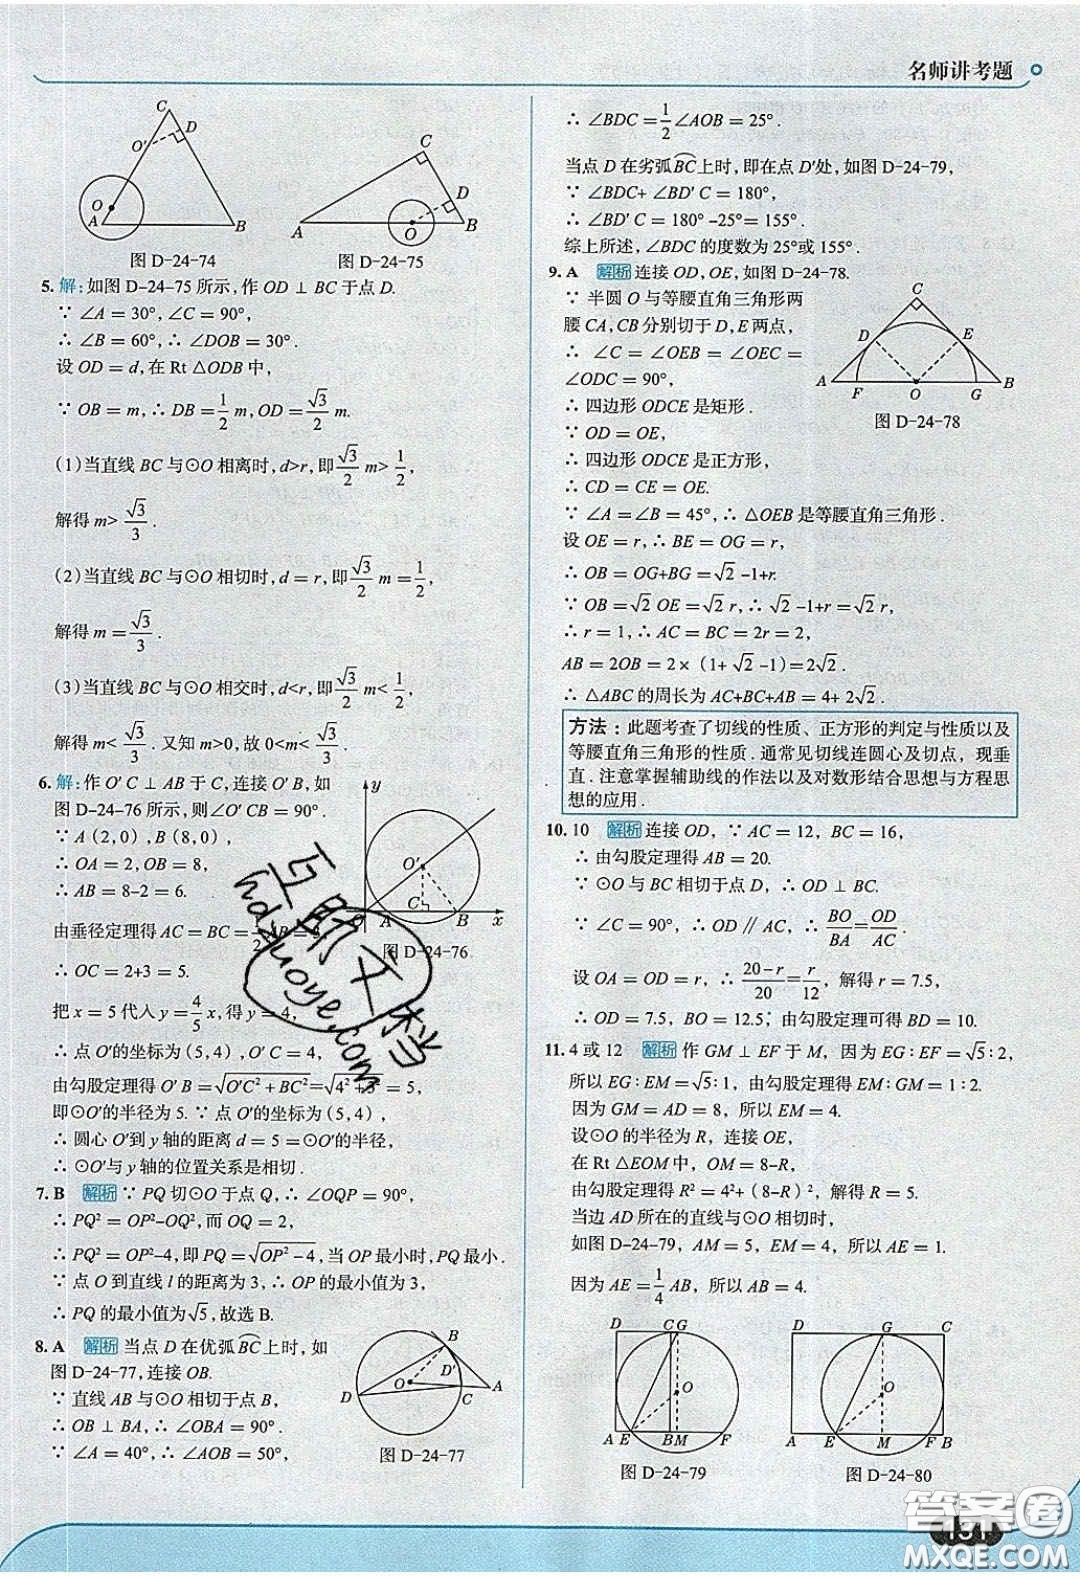 名师讲考题
C
D
O′
O
A
B
图 D-24-74
C
D
A
O
B
图 D-24-75
5. 解:如图 D-24-75 所示,作 OD ⊥ BC 于点 D.
∵ ∠A = 30°,∠C = 90°,
∴ ∠B = 60°,∴ ∠DOB = 30°.
设 OD = d,在 Rt △ODB 中,
∵ OB = m,∴ DB = 1/2 m,OD = √3/2 m.
(1)当直线 BC 与⊙O 相离时,d>r,即 √3/2 m> 1/2,
解得 m> √3/3 .
(2)当直线 BC 与⊙O 相切时,d = r,即 √3/2 m = 1/2,
解得 m = √3/3 .
(3)当直线 BC 与⊙O 相交时,d<r,即 √3/2 m< 1/2,
解得 m< √3/3 . 又知 m>0,故 0<m< √3/3 .
6. 解:作 O′ C ⊥ AB 于 C,连接 O′ B,如
图 D-24-76 所示,则∠O′ CB = 90°.
∵ A(2,0),B(8,0),
∴ OA = 2,OB = 8,
∴ AB = 8-2 = 6.
由垂径定理得 AC = BC = 1/2 AB = 3,
∴ OC = 2+3 = 5.
把 x = 5 代入 y = 4/5 x,得 y = 4,
∴ 点 O′的坐标为(5,4),O′ C = 4,
由勾股定理得 O′ B = √(O′C²+BC²) = √(4²+3²) = 5,
即⊙O′的半径为 5. ∵ 点 O′的坐标为(5,4),
∴ 圆心 O′到 y 轴的距离 d = 5 = ⊙O′的半径,
∴ ⊙O′与 y 轴的位置关系是相切.
y
O′
C
O
A
B
x
图 D-24-76
7. B 解析 ∵ PQ 切⊙O 于点 Q,∴ ∠OQP = 90°,
∴ PQ² = OP²-OQ²,而 OQ = 2,
∴ PQ² = OP²-4,即 PQ = √(OP²-4),当 OP 最小时,PQ 最小.
∵ 点 O 到直线 l 的距离为 3,∴ OP 的最小值为 3,
∴ PQ 的最小值为√5,故选 B.
8. A 解析 当点 D 在优弧BC上时,如
图 D-24-77,连接 OB.
∵ 直线 AB 与⊙O 相切于点 B,
∴ OB ⊥ BA,∴ ∠OBA = 90°,
∵ ∠A = 40°,∴ ∠AOB = 50°,
B
O
D′
D
C
A
图 D-24-77
∴ ∠BDC = 1/2 ∠AOB = 25°.
当点 D 在劣弧BC上时,即在点 D′处,如图 D-24-79,
∵ ∠BDC+ ∠BD′ C = 180°,
∴ ∠BD′ C = 180° -25°= 155°.
综上所述,∠BDC 的度数为 25°或 155°.
9. A 解析 连接 OD,OE,如图 D-24-78.
∵ 半圆 O 与等腰直角三角形两
腰 CA,CB 分别切于 D,E 两点,
∴ ∠C = ∠OEB = ∠OEC =
∠ODC = 90°,
∴ 四边形 ODCE 是矩形.
∵ OD = OE,
∴ 四边形 ODCE 是正方形,
∴ CD = CE = OE.
∵ ∠A = ∠B = 45°,∴ △OEB 是等腰直角三角形.
设 OE = r,∴ BE = OG = r,
∴ OB = OG+BG = √2 -1+r.
∵ OB = √2 OE = √2 r,∴ √2 -1+r = √2 r,
∴ r = 1,∴ AC = BC = 2r = 2,
AB = 2OB = 2×(1+ √2 -1)=2√2.
∴ △ABC 的周长为 AC+BC+AB = 4+ 2√2.
C
D
E
A
F
O
G
B
图 D-24-78
方法:此题考查了切线的性质、正方形的判定与性质以及
等腰直角三角形的性质. 通常见切线连圆心及切点,现垂
直. 注意掌握辅助线的作法以及对数形结合思想与方程思
想的应用.
10. 10 解析 连接 OD,∵ AC = 12,BC = 16,
∴ 由勾股定理得 AB = 20.
∵ ⊙O 与 BC 相切于点 D,∴ OD ⊥ BC.
∵ ∠C = 90°,∴ OD ∥ AC,∴ BO/BA = OD/AC.
设 OA = OD = r,∴ (20-r)/20 = r/12,解得 r = 7.5,
∴ OD = 7.5,BO = 12.5; 由勾股定理可得 BD = 10.
11. 4 或 12 解析 作 GM ⊥ EF 于 M,因为 EG∶EF = √5∶2,
所以 EG∶EM = √5∶1,由勾股定理得 EM∶GM = 1∶2.
因为 GM = AD = 8,所以 EM = 4.
设⊙O 的半径为 R,连接 OE,
在 Rt △EOM 中,OM = 8-R,
由勾股定理得 R² = 4²+(8-R)²,解得 R = 5.
当边 AD 所在的直线与⊙O 相切时,
如图 D-24-79,AM = 5,EM = 4,所以 AE = 1.
因为 AE = 1/4 AB,所以 AB = 4.
D
C G
O
A E
B M
F
图 D-24-79
D
G
C
O
A
E
M
F B
图 D-24-80
互联文档
hdzuoye.com
答案圈
131
MXQE.COM